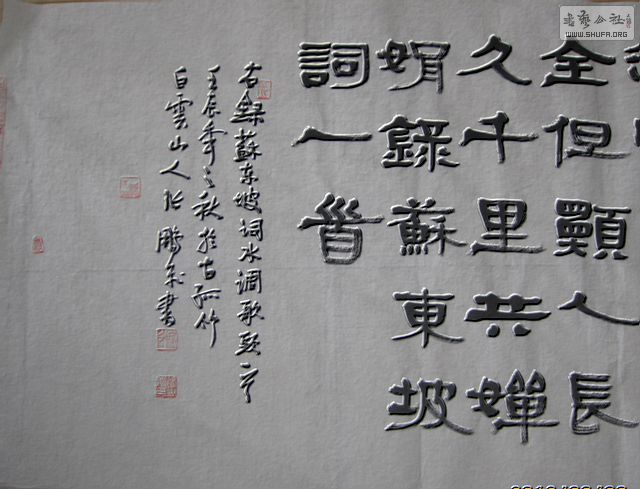 書藝公社
WWW.SHUFA.ORG
全但願人長
久千里共嬋
娟錄蘇東坡
詞一首
右錄蘇東坡詞水调歌頭
壬辰年之秋於古孤竹
白雲山人張鵬書